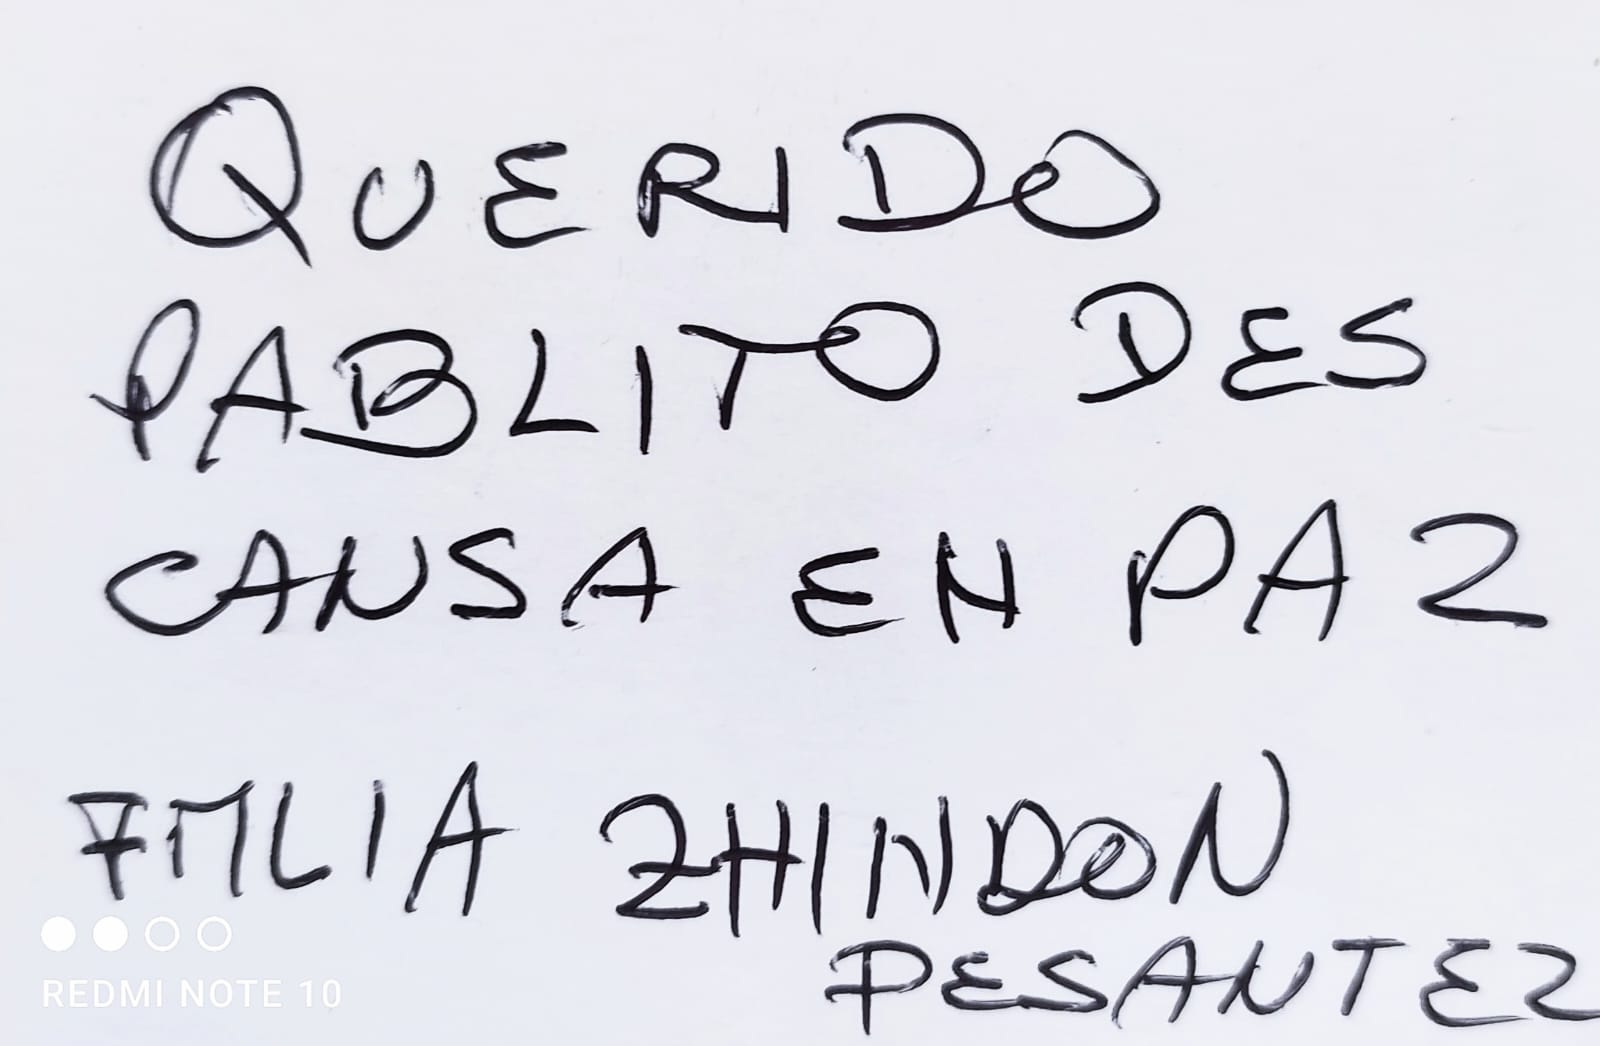 QUERIDO
PABLITO DES
CANSA EN PAZ
FMLIA ZHINDON
PESANTEZ
REDMI NOTE 10